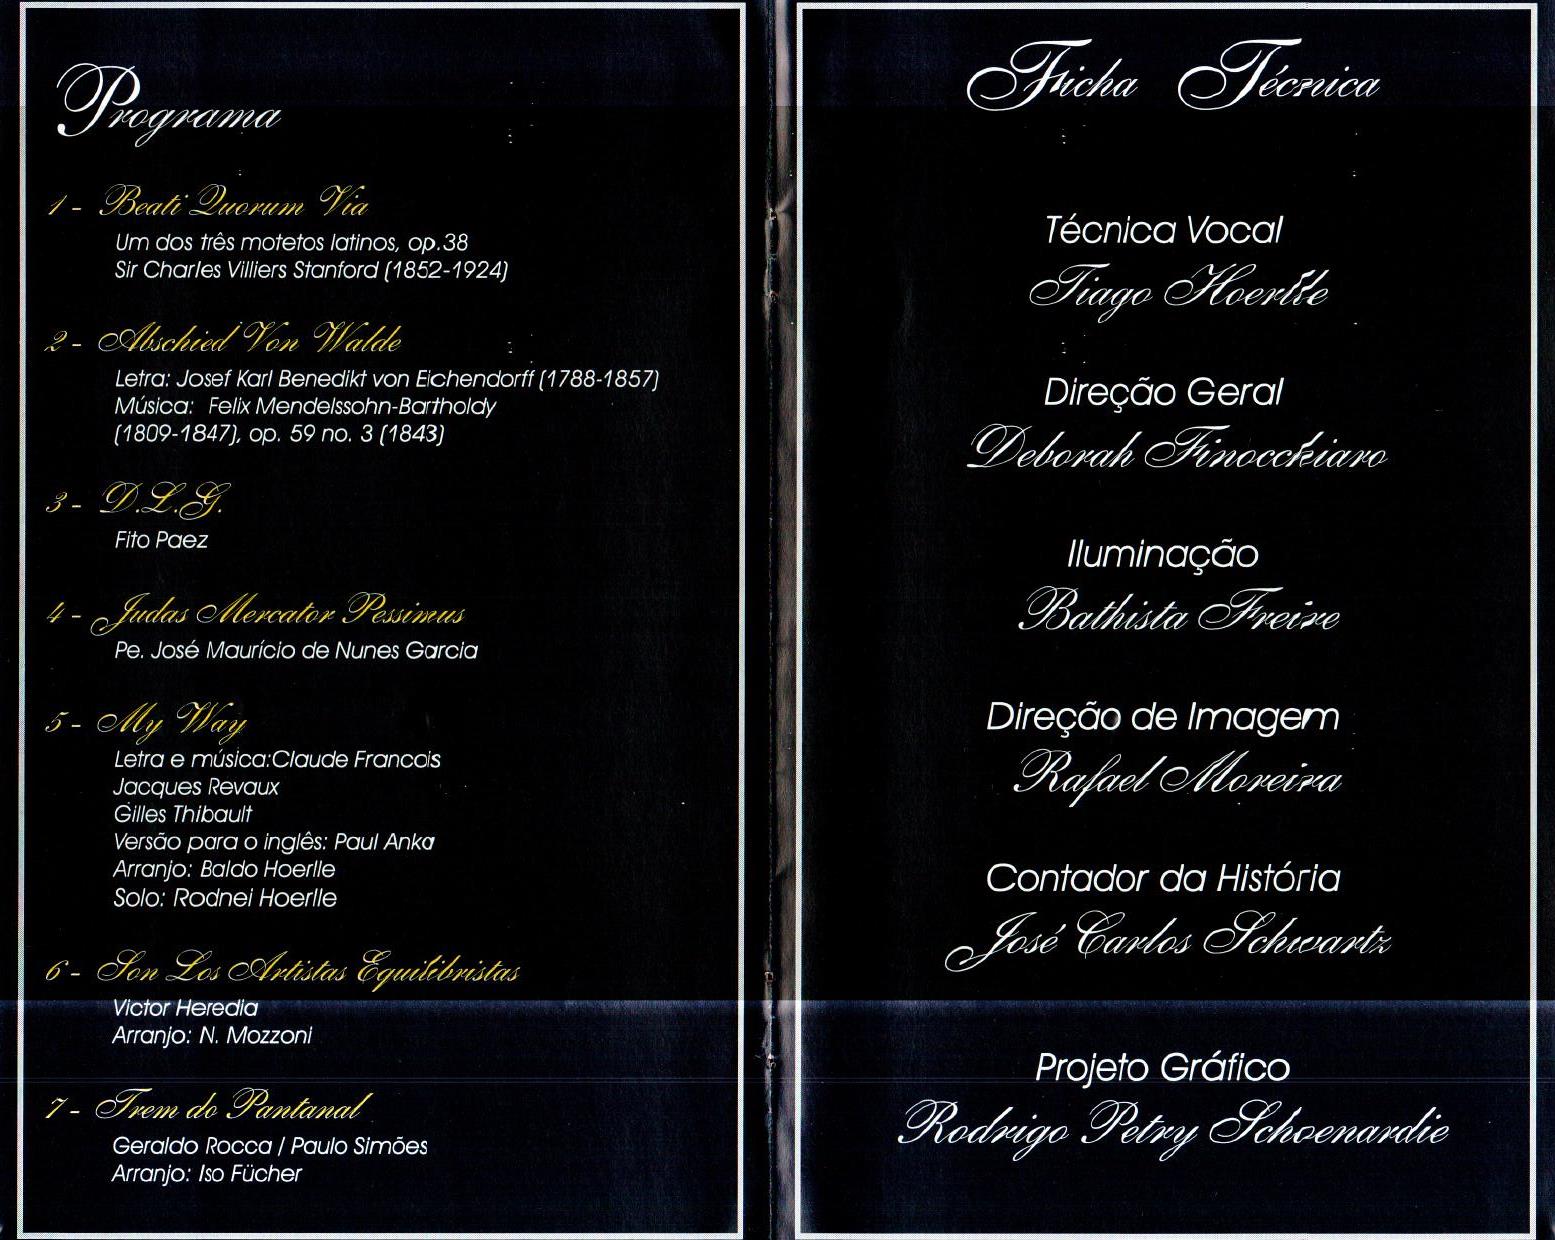 Programa
1 - Beati Quorum Via
Um dos três motetos latinos, op.38
Sir Charles Villiers Stanford (1852-1924)
2 - Abschied Von Walde
Letra: Josef Karl Benedikt von Eichendorff (1788-1857)
Música: Felix Mendelssohn-Bartholdy
(1809-1847), op. 59 no. 3 (1843)
3 - D.L.G.
Fito Paez
4 - Judas Mercator Pessimus
Pe. José Maurício de Nunes Garcia
5 - My Way
Letra e música:Claude Francois
Jacques Revaux
Gilles Thibault
Versão para o inglês: Paul Anka
Arranjo: Baldo Hoerlle
Solo: Rodnei Hoerlle
6 - Son Los Artistas Equilibristas
Victor Heredia
Arranjo: N. Mozzoni
7 - Trem do Pantanal
Geraldo Rocca / Paulo Simões
Arranjo: Iso Fücher
Ficha Técnica
Técnica Vocal
Tiago Hoerlle
Direção Geral
Deborah Finocchiaro
Iluminação
Bathista Freire
Direção de Imagem
Rafael Moreira
Contador da História
José Carlos Schwartz
Projeto Gráfico
Rodrigo Petry Schoenardie